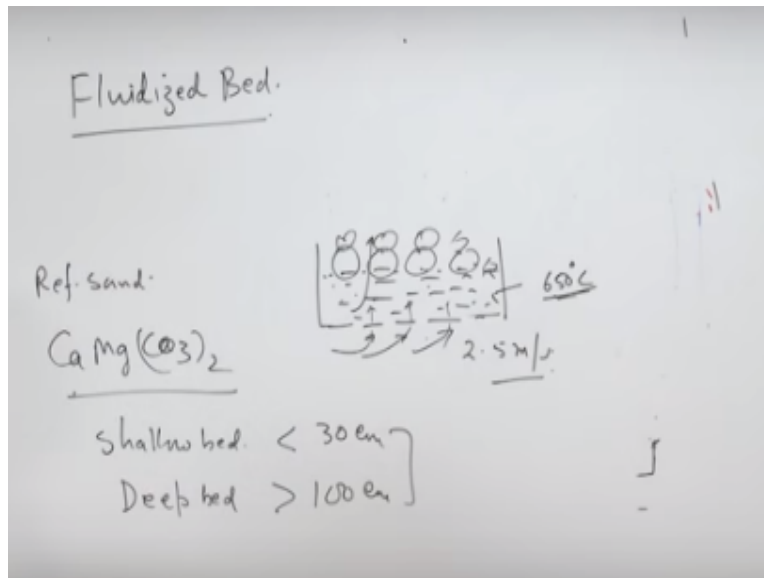 Fluidized Bed.
Ref. Sand.
650°C
CaMg(CO3)2
2.5 m/s
Shallow bed. < 30 cm
Deep bed > 100 cm